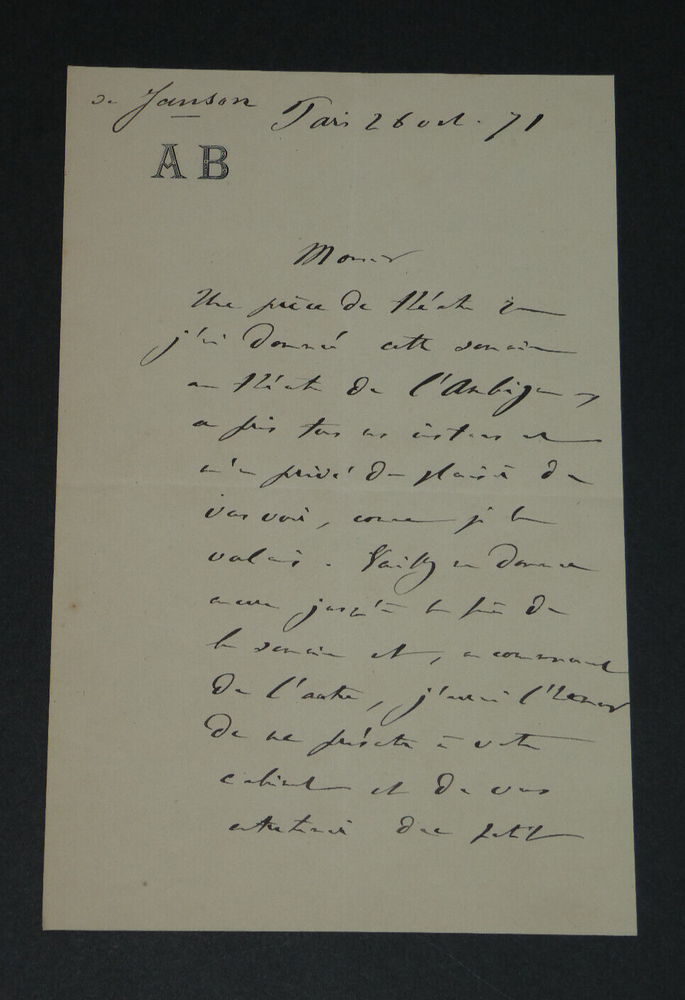 de Janson Paris 26 oct. 71
AB
Monsieur
Une pièce de théâtre que
j'ai donné cette semaine
au théâtre de l'Ambigu,
a pris tous mes instans et
m'a privé du plaisir de
vous voir, comme je le
voulais. Veuillez me donner
encore jusqu'à la fin de
la semaine et, au commencement
de l'autre, j'aurai l'honneur
de me présenter à votre
cabinet et de vous
entretenir du petit